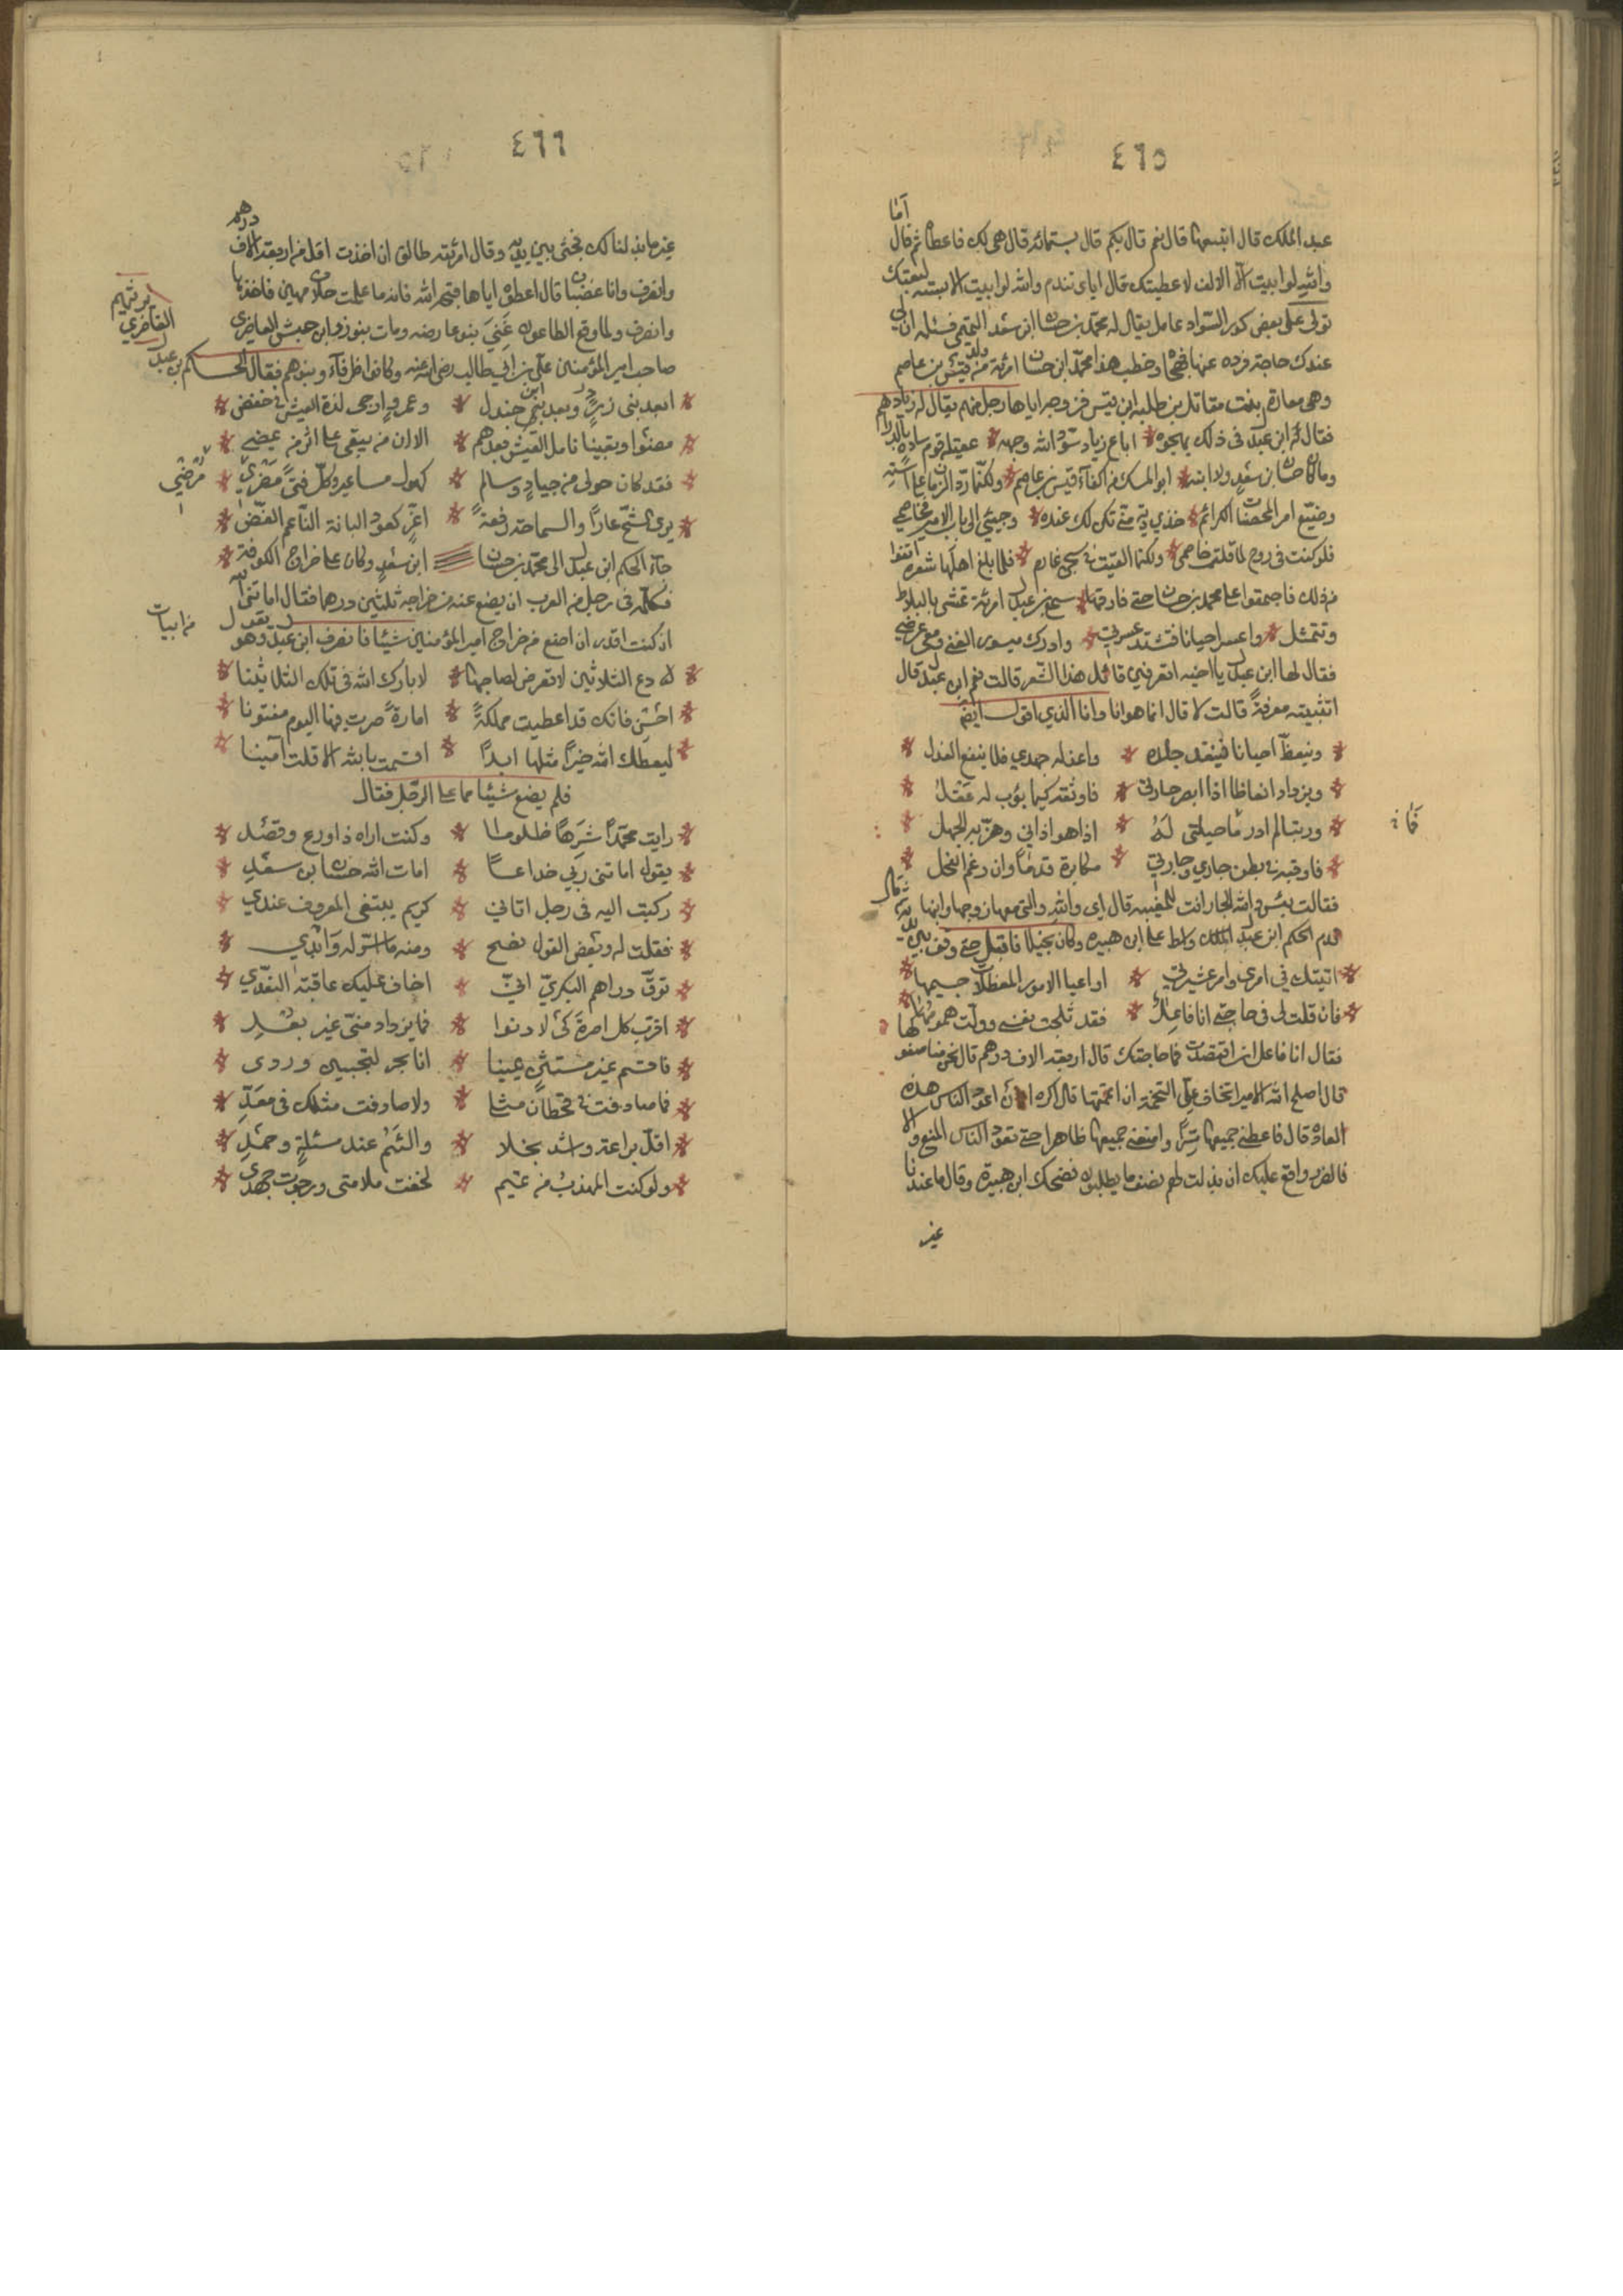 ٤٦٥
أما
عبد الملك قال اتبيعها قال نعم قال بكم قال بستمائة قال هي لك فاعطا ثم قال
والله لوابيت الا الالف لاعطيتك قال اياى تندم والله لوابيت الا ستة لبعتك
تولى على بعض كور السواد عامل يقال له محمد بن حسان ابن سعد التميمي فسئله ان لي
عندك حاجة فرده عنها فهجاه وخطب هذا محمد ابن حسان امرئة من ولد قيس بن عاصم
وهي معاذة بنت مقاتل بن طلبه ابن قيس فزوجها اياها رجل منهم يقال له زياد
فقال ابن عبدل في ذلك يهجوه * اباع زياد سود الله وجهه * عقيلة قوم سادة بالدراهم
وما كان حسان ابن سعد ولا ابنه * ابو المسك من اكفاء قيس بن عاصم * ولكنه رد الزمان على استه
وضيع امر المحصنات الكرائم * خذي دية منه تكن لك عنده * وجيئي الى باب الامير فخاصمي
فلو كنت في روح لما قلت خاصمي * ولكنما القيت في سجن غارم * فلما بلغ اهلها شعره انفوا
من ذلك فاجتمعوا على محمد بن حسان حتى فارقها * سمع بن عبدل امرئة تمشي بالبلاط
وتتمثل * واعسر احيانا فتشتد عسرتي * وادرك ميسور الغنى ومعي عرضي
فقال لها ابن عبدل يا اخيه اتعرفين قائل هذا الشعر قالت نعم ابن عبدل قال
اتثبيته معرفة قالت لا قال انما هو انا وانا الذي اقول ايضا
* وينعظ احيانا فينقد جلده * واعذله جهدي فلا ينفع العذل *
* ويزداد انعاظا اذا ابصر جارتي * فاوثقه كيما يؤب له عقل *
* وربتما لم ادر ما حيلتي له * اذا هو اذاني وهزبه الجهل *
فما
* فاوقبه في بطن جاري وجارتي * مكابرة قدما وان رغم البخل *
فقالت بئس والله الجار انت للمغيبه قال اي والله والتي معها زوجها وابنها
قدم الحكم ابن عبدل واسط على ابن هبيره وكان بخيلا فاقبل حتى وقف بين يديه
* اتيتك في امر من امر عشيرتي * او اعيا الامور المفظعات جسيمها *
* فان قلت لي في حاجتي انا فاعل * فقد ثلجت نفسي وولت همومها *
فقال انا فاعل ان اقتصدت فما حاجتك قال اربعة الاف درهم قال نحن مناصفو
لها
قال اصلح الله الامير اتخاف علي التخمة ان اتممتها قال اكره ان اعود الناس هذه
العادة قال فاعطني جميعها سرا وامنعني جميعها ظاهرا حتى تعود الناس المنع والا
فالضرر واقع عليك ان بذلت لهم نصف ما يطلبون فضحك ابن هبيرة وقال ما عندنا
غير
٤٦٦
درهم
غير ما بذلناه لك فجثى بين يديه وقال امرئته طالق ان اخذت اقل من اربعة الاف
وانصرف وانا غضبان قال اعطوه اياها قبحه الله فانه ما علمت حلاف مهين فاخذها
وانصرف ولما وقع الطاعون غني بنو عاضره ومات بنو زر ابن حبيش الغاضري
صاحب امير المؤمنين علي بن ابي طالب رضي الله عنه وكانوا ظرفاء وبنو هم فقال الحكم بن عبدل
يرثيهم
الغاضري
* ابعد بني زر وبعد ابن جندل * وعمرو ارجى لذة العيش في خفض *
* مضوا وبقينا نامل العيش بعدهم * الا ان من يبقى على اثر من يمضي *
* فقد كان حولي من جياد وسالم * كهول مساعير وكل فتى *
* يرى الشح عارا والسماحة رفعة * اغر كعود البانة الناعم الغض *
جاء الحكم ابن عبدل الى محمد بن حسان ابن سعد وكان على خراج الكوفة *
فكلمه في رجل من العرب ان يضع عنه من خراجه ثلثين درهما فقال اماتني الله
ان كنت اقدر ان اضع من خراج امير المؤمنين شيئا فانصرف ابن عبدل وهو يقول
من ابيات
* له دع الثلاثين لا تعرض لصاحبها * لا بارك الله في تلك الثلاثينا *
* اخشن فانك قد اعطيت مملكة * امارة صرت فيها اليوم مفتونا *
* ليعطك الله خيرا مثلها ابدا * اقسمت بالله الا قلت آمينا *
فلم يضع شيئا مما على الرجل فقال
* رايت محمدا شرها ظلوما * وكنت اراه ذا ورع وقصد *
* يقول اماتني ربي خداعا * امات الله حسان بن سعد *
* ركبت اليه في رجل اتاني * كريم يبتغي المعروف عندي *
* فقلت له وبعض القول نصح * ومنه ما اسر له وابدي *
* توق دراهم البكري اني * اخاف عليك عاقبة التعدي *
* اقرب كل اصرة لادنوا * فما يزداد مني غير بعد *
* فاقسم غير مستثن يمينا * ابا بخر لتخبين وردي *
* فما صادفت في قحطان مثلي * ولا صادفت مثلك في معد *
* اقل براعة واشد بخلا * والئم عند مسئلة وحمد *
* ولو كنت المهذب من تميم * لخفت ملامتي ورجوت حمدي *